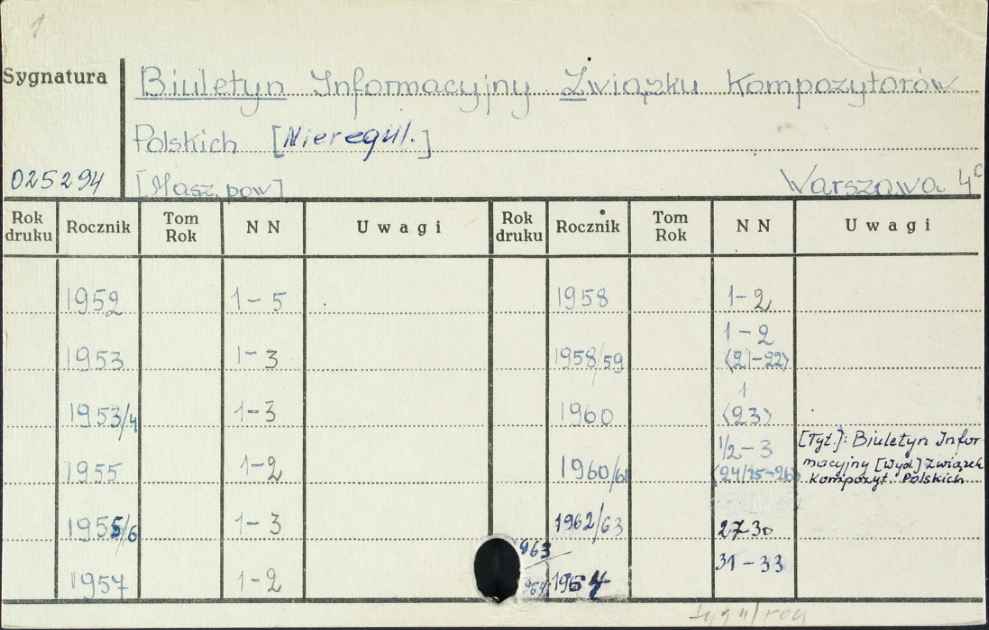 1
Sygnatura
Biuletyn Informacyjny Związku Kompozytorów
Polskich [Nieregul.]
025294 [Masz. pow] Warszawa 4°
Rok druku Rocznik Tom Rok NN Uwagi Rok druku Rocznik Tom Rok NN Uwagi
1952 1-5 1958 1-2
1953 1-3 1958/59 1-2 (21-22)
1953/4 1-3 1960 1 (23)
1955 1-2 1960/61 1/2-3 (24/25-26) [Tyt.]: Biuletyn Infor-
macyjny [Wyd.] Związek
Kompozyt. Polskich
1955/6 1-3 1962/63 27-30
1957 1-2 1963 1964 31-33